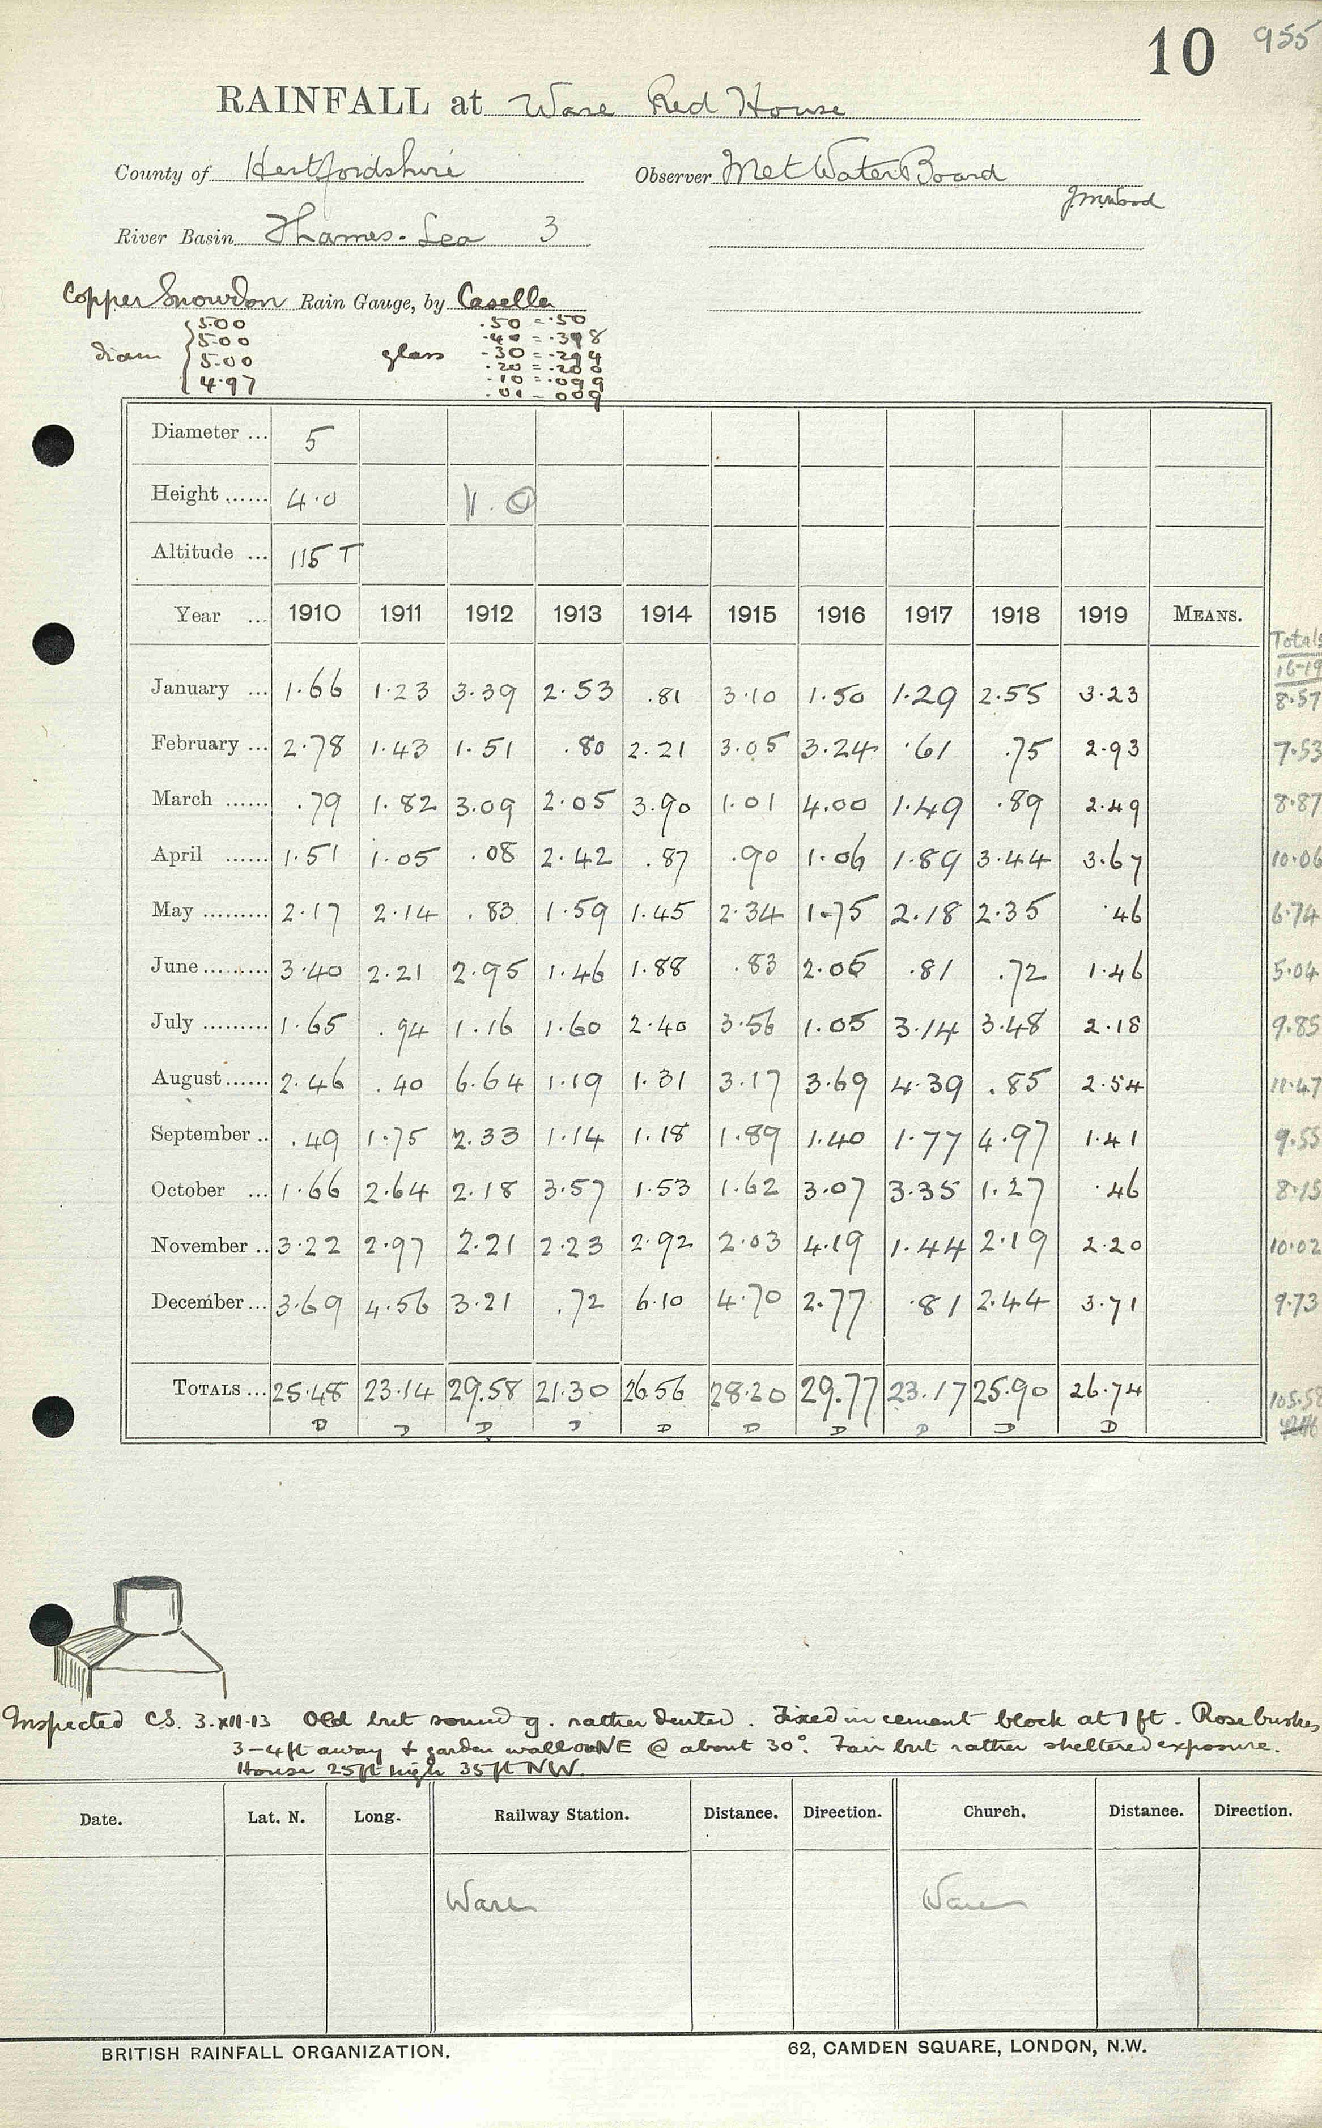 10 955
RAINFALL at Ware Red House
County of Hertfordshire Observer Met Water Board
J.M. Wood
River Basin Thames-Lea 3
Copper Snowdon Rain Gauge, by Casella
diam 5.00 5.00 5.00 4.97 glass
.50 = .50
.40 = .398
.30 = .294
.20 = .200
.10 = .099
.01 = 009
Diameter ... 5
Height ...... 4.0 1.0
Altitude ... 115 T
Year ... 1910 1911 1912 1913 1914 1915 1916 1917 1918 1919 MEANS. Totals 16-19
January ... 1.66 1.23 3.39 2.53 .81 3.10 1.50 1.29 2.55 3.23 8.57
February ... 2.78 1.43 1.51 .80 2.21 3.05 3.24 .61 .75 2.93 7.53
March ...... .79 1.82 3.09 2.05 3.90 1.01 4.00 1.49 .89 2.49 8.87
April ...... 1.51 1.05 .08 2.42 .87 .90 1.06 1.89 3.44 3.67 10.06
May ......... 2.17 2.14 .83 1.59 1.45 2.34 1.75 2.18 2.35 .46 6.74
June ......... 3.40 2.21 2.95 1.46 1.88 .83 2.05 .81 .72 1.46 5.04
July ......... 1.65 .94 1.16 1.60 2.40 3.56 1.05 3.14 3.48 2.18 9.85
August ...... 2.46 .40 6.64 1.19 1.31 3.17 3.69 4.39 .85 2.54 11.47
September .. .49 1.75 2.33 1.14 1.18 1.89 1.40 1.77 4.97 1.41 9.55
October ... 1.66 2.64 2.18 3.57 1.53 1.62 3.07 3.35 1.27 .46 8.15
November .. 3.22 2.97 2.21 2.23 2.92 2.03 4.19 1.44 2.19 2.20 10.02
December ... 3.69 4.56 3.21 .72 6.10 4.70 2.77 .81 2.44 3.71 9.73
TOTALS ... 25.48 23.14 29.58 21.30 26.56 28.20 29.77 23.17 25.90 26.74 105.58
D D D D D D D D D D
Inspected C.S. 3.XII.13 Old but sound g. rather dented. Fixed in cement block at 1 ft. Rose bushes
3-4ft away & garden wall on NE @ about 30°. Fair but rather sheltered exposure.
House 25ft high 35ft NW.
Date. Lat. N. Long. Railway Station. Distance. Direction. Church. Distance. Direction.
Ware Ware
BRITISH RAINFALL ORGANIZATION. 62, CAMDEN SQUARE, LONDON, N.W.